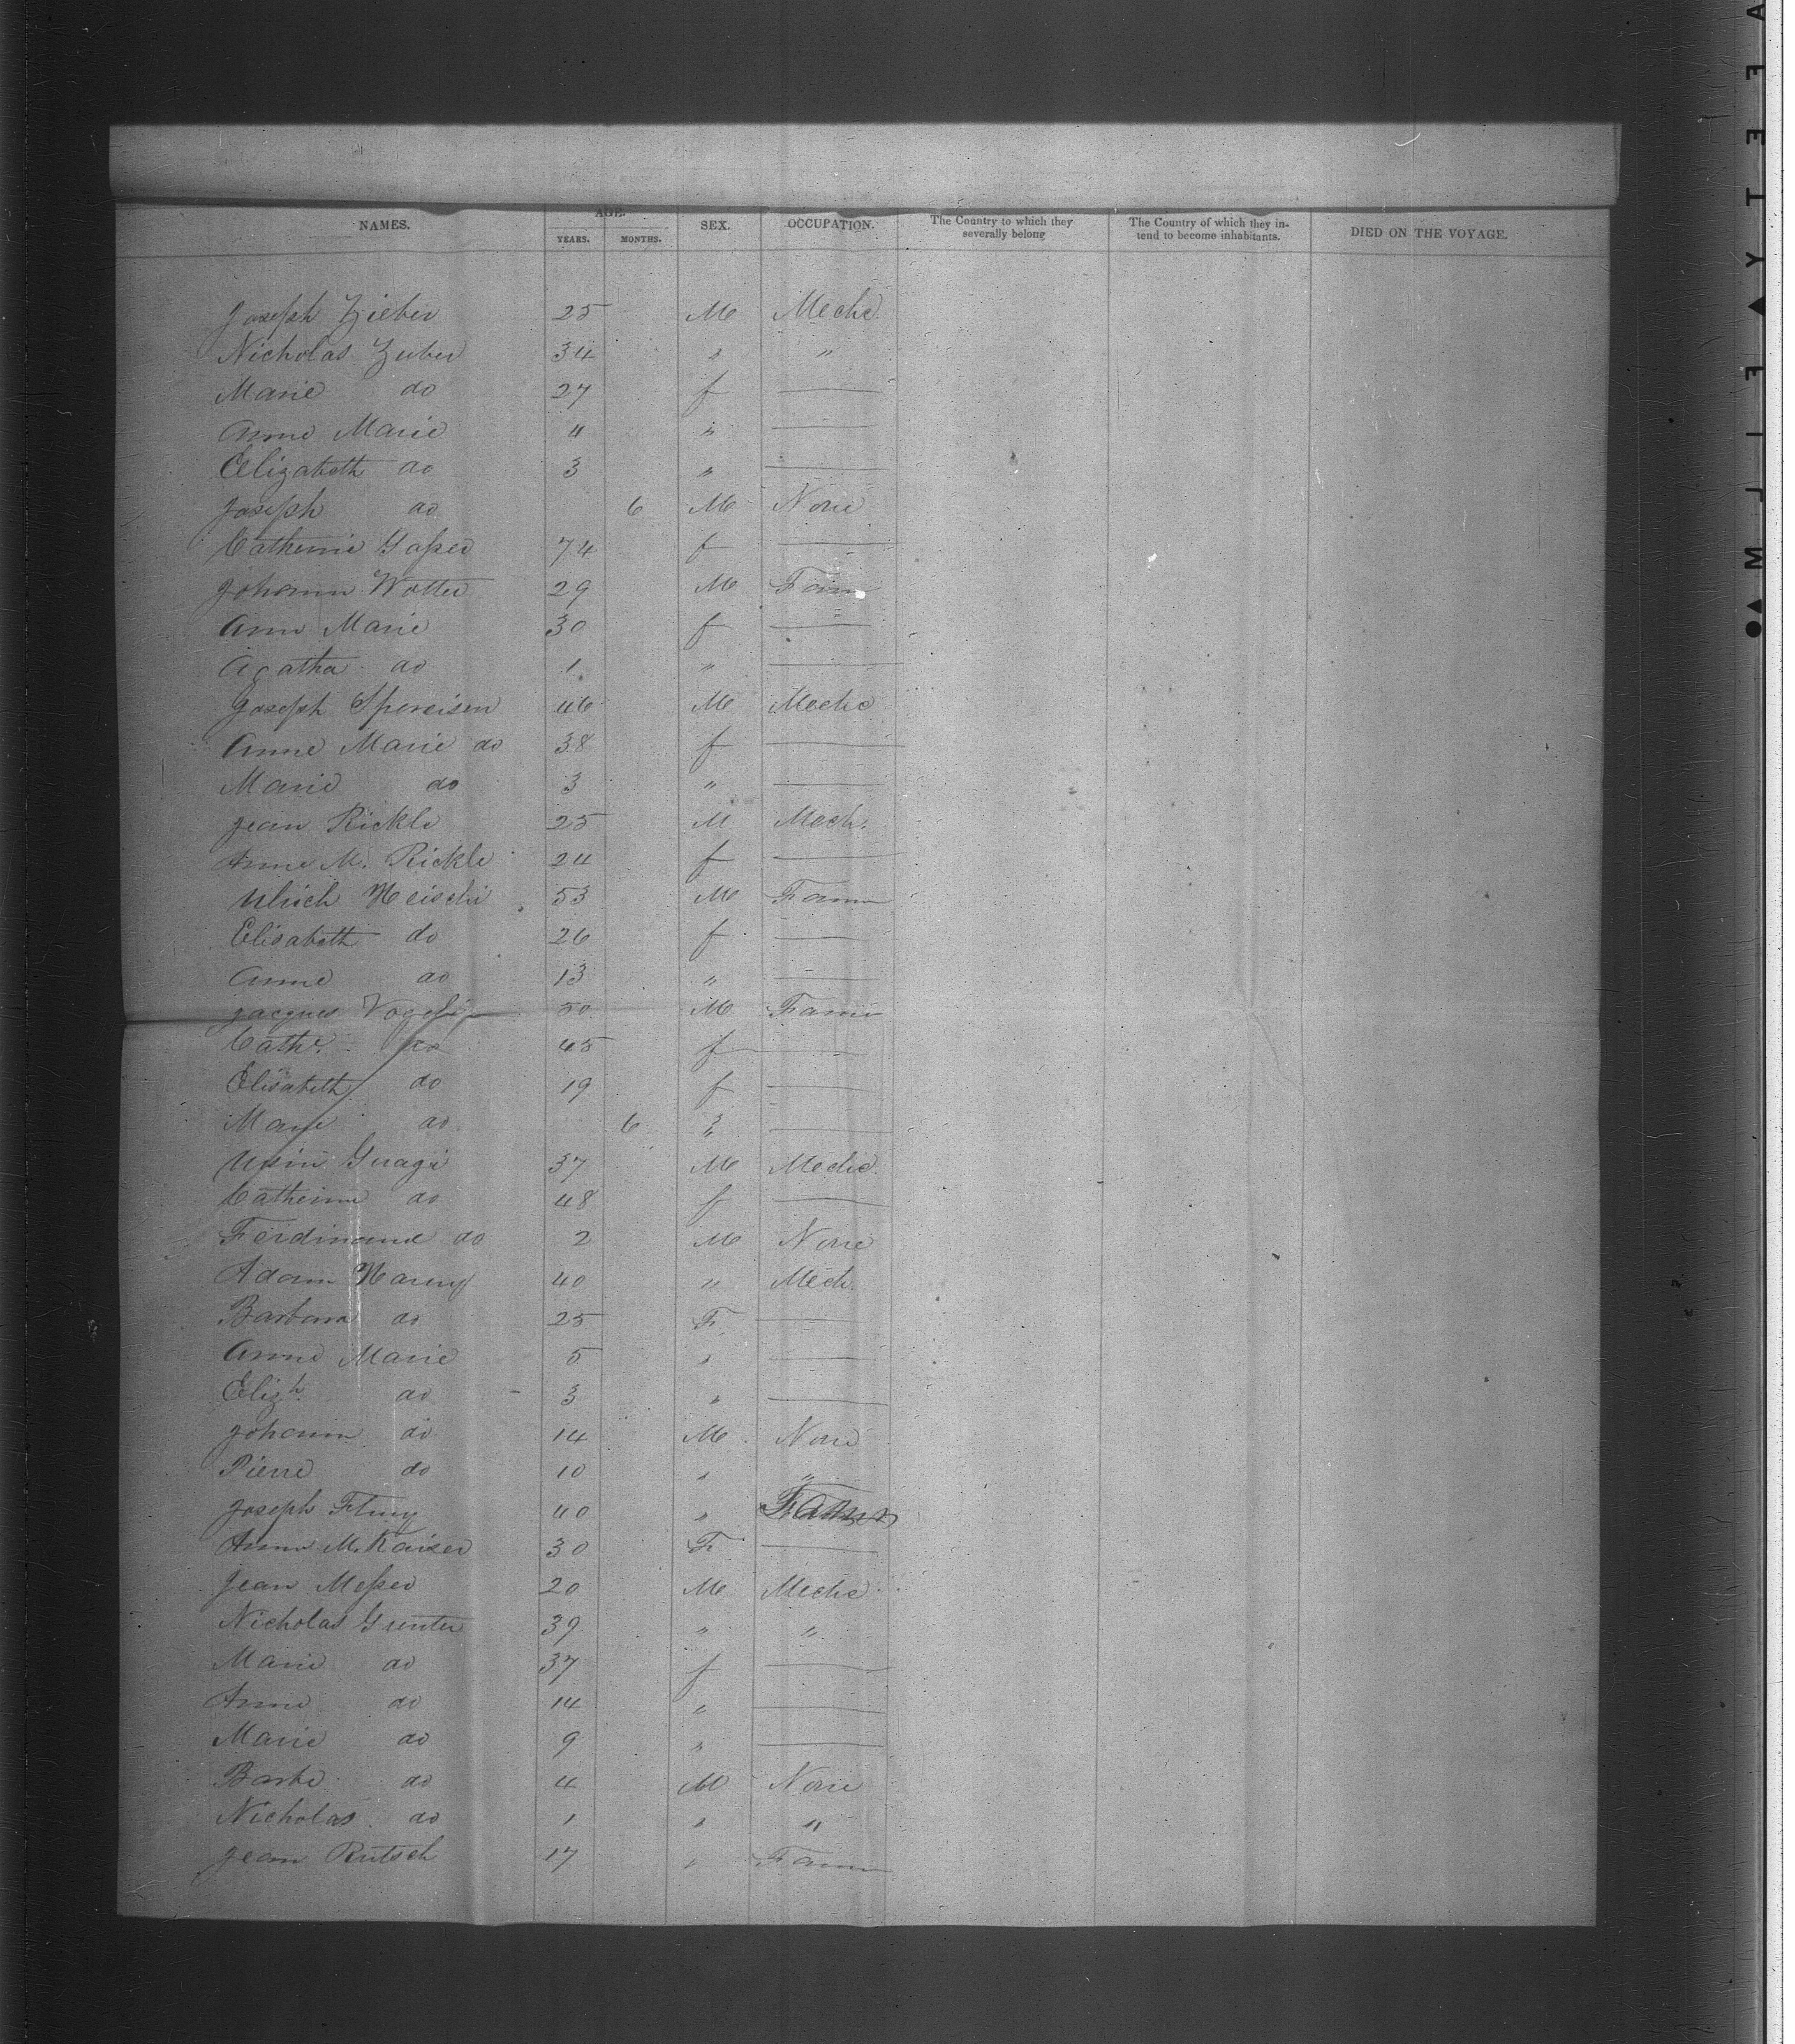 NAMES. AGE. YEARS. MONTHS. SEX. OCCUPATION. The Country to which they severally belong The Country of which they intend to become inhabitants. DIED ON THE VOYAGE.
Joseph Zieber 25 M Mechc.
Nicholas Zuber 34 " "
Marie do 27 f —
Anne Marie 4 " —
Elizabeth do 3 " —
Joseph do 6 M None
Catherine Gasser 74 f —
Johann Wolter 29 M Farm
Ann Marie 30 f —
Agatha do 1 " —
Joseph Spereisen 46 M Mechc
Anne Marie do 38 f —
Marie do 3 " —
Jean Rickle 25 M Mech.
Anne M. Rickle 24 f —
Ulrich Heischi 53 M Farm
Elisabeth do 26 f —
Anne do 13 " —
Jacques Vogeli 50 M Farmr
Cathe. do 45 f —
Elisabeth do 19 f —
Marie do 6 " —
Gnagi 37 M Mechc.
Catherine do 48 f —
Ferdinand do 2 M None
Adam 40 " Mech.
Barbara do 25 F —
Anne Marie 5 " —
Elizh. do 3 " —
Johann do 14 M None
Pierre do 10 " "
Joseph Flury 40 " Farmer
Anna M. Kaiser 30 F —
Jean Messer 20 M Mechc
Nicholas Gunter 39 " "
Marie do 37 f —
Anne do 14 " —
Marie do 9 " —
Barbe do 4 M None
Nicholas do 1 " "
Jean Rutsch 17 " Farm